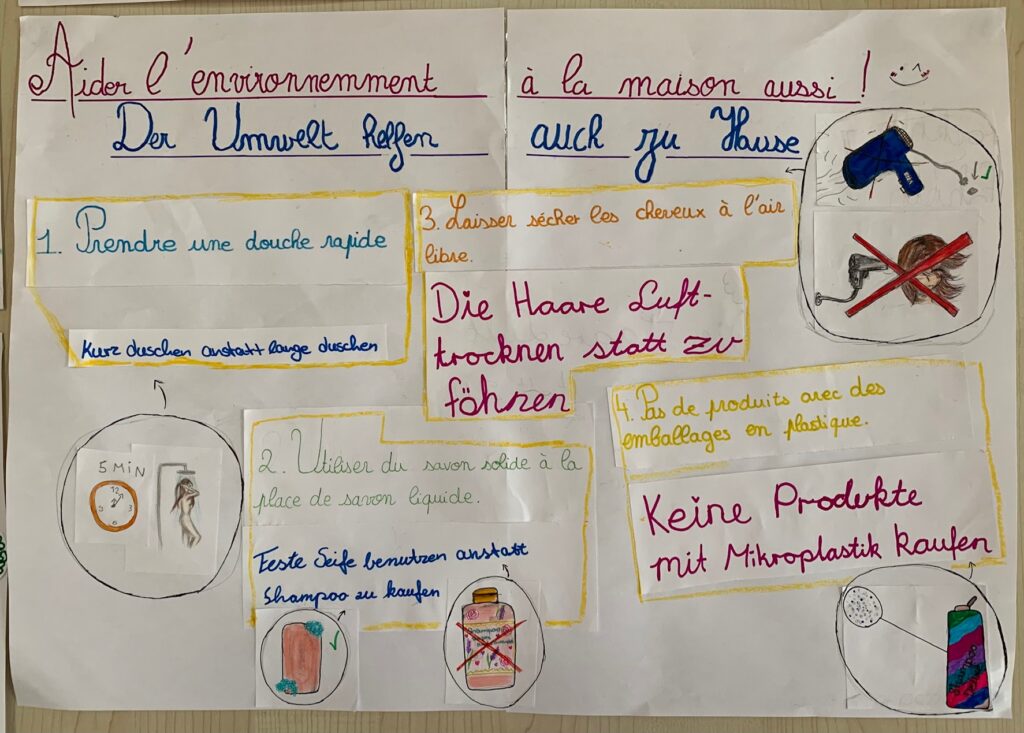 Aider l'environnemment à la maison aussi !
Der Umwelt helfen auch zu Hause
1. Prendre une douche rapide
Kurz duschen anstatt lange duschen
5 MIN
12
3
6
9
2. Utiliser du savon solide à la
place de savon liquide.
Feste Seife benutzen anstatt
Shampoo zu kaufen
3. Laisser sécher les cheveux à l'air
libre.
Die Haare Luft-
trocknen statt zu
föhnen
4. Pas de produits avec des
emballages en plastique.
Keine Produkte
mit Mikroplastik kaufen